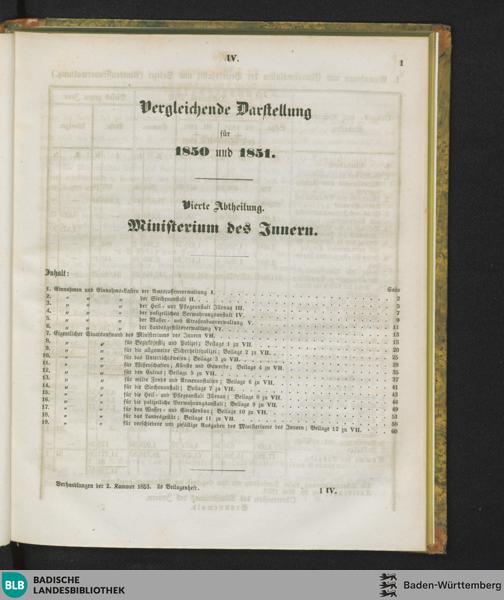 IV.
1
Vergleichende Darstellung
für
1850 und 1851.
Vierte Abtheilung.
Ministerium des Innern.
Inhalt:
Seite
1. Einnahmen und Einnahms-Lasten der Amtskassenverwaltung I. 2
2. " " " der Siechenanstalt II. 3
3. " " " der Heil- und Pflegeanstalt Illenau III. 5
4. " " " der polizeilichen Verwahrungsanstalt IV. 7
5. " " " der Wasser- und Straßenbauverwaltung V. 9
6. " " " der Landesgestütsverwaltung VI. 11
7. Eigentlicher Staatsaufwand des Ministeriums des Innern VII. 13
8. " " für Bezirksjustiz und Polizei; Beilage 1 zu VII. 15
9. " " für die allgemeine Sicherheitspolizei; Beilage 2 zu VII. 20
10. " " für das Unterrichtswesen; Beilage 3 zu VII. 25
11. " " für Wissenschaften, Künste und Gewerbe; Beilage 4 zu VII. 29
12. " " für den Kultus; Beilage 5 zu VII. 35
13. " " für milde Fonds und Armenanstalten; Beilage 6 zu VII. 37
14. " " für die Siechenanstalt; Beilage 7 zu VII. 41
15. " " für die Heil- und Pflegeanstalt Illenau; Beilage 8 zu VII. 43
16. " " für die polizeiliche Verwahrungsanstalt; Beilage 9 zu VII. 46
17. " " für den Wasser- und Straßenbau; Beilage 10 zu VII. 49
18. " " für das Landesgestüt; Beilage 11 zu VII. 58
19. " " für verschiedene und zufällige Ausgaben des Ministeriums des Innern; Beilage 12 zu VII. 60
Verhandlungen der 2. Kammer 1851. 2s Beilagenheft.
1 IV.
BLB BADISCHE
LANDESBIBLIOTHEK
Baden-Württemberg